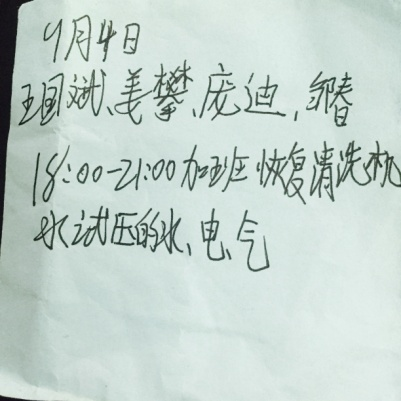 9月4日
王国斌、姜攀、庞迪,春
18:00-21:00加班恢复清洗机
水试压的水、电、气